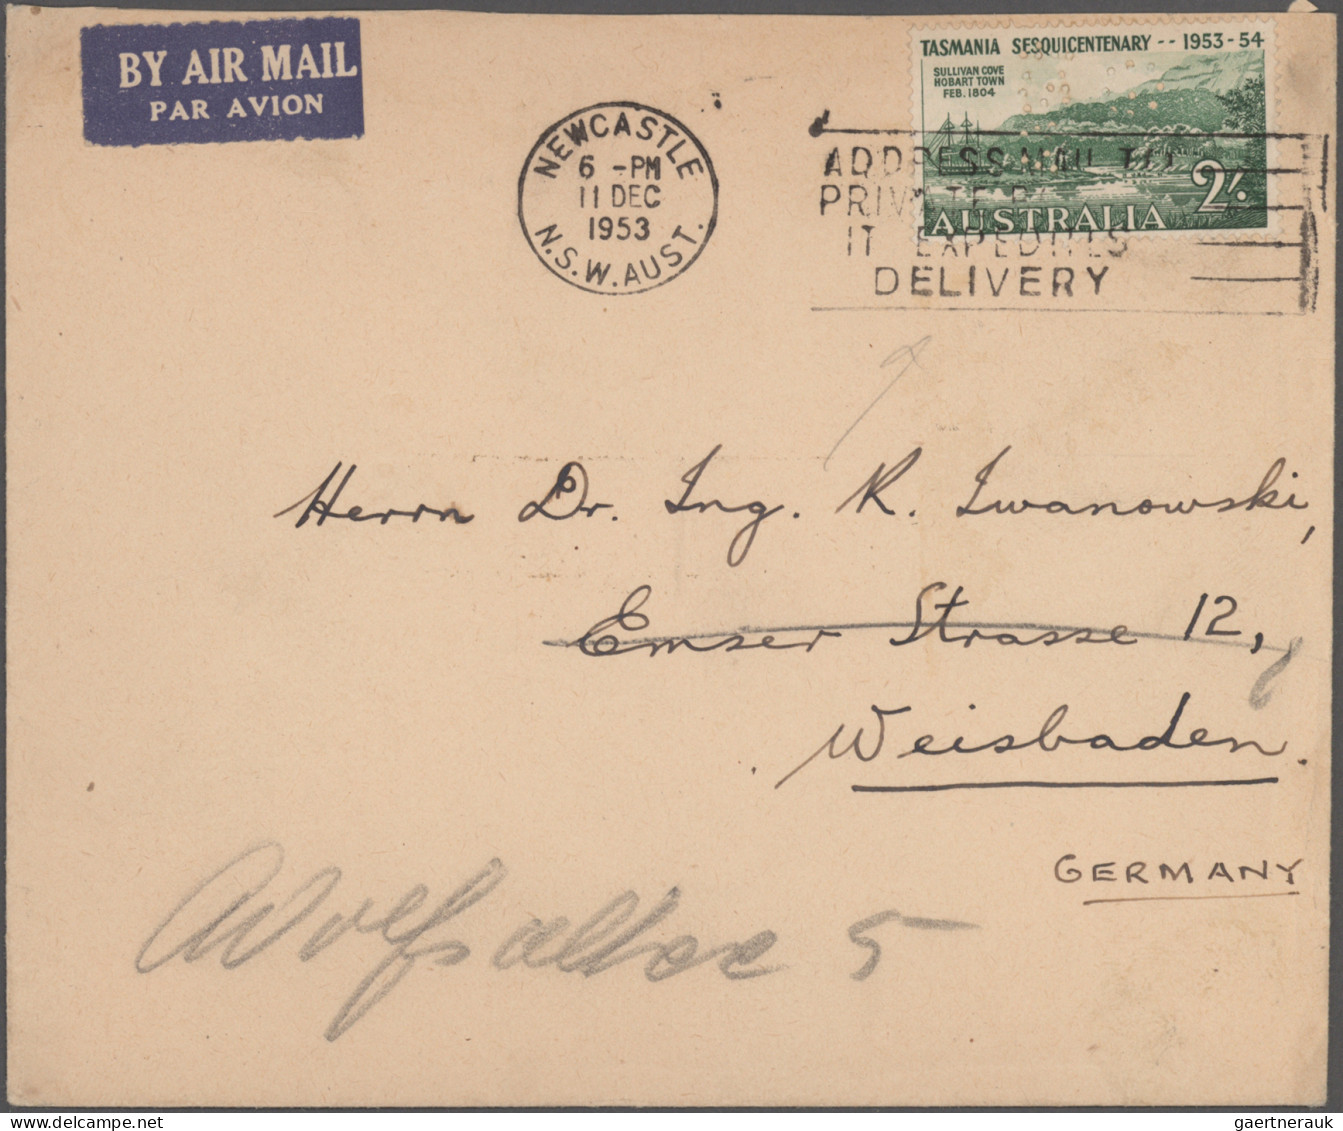 BY AIR MAIL
PAR AVION
NEWCASTLE
6 -PM
11 DEC
1953
N.S.W. AUST.
TASMANIA SESQUICENTENARY -- 1953-54
SULLIVAN COVE
HOBART TOWN
FEB. 1804
2/-
AUSTRALIA
ADDRESS MAIL TO
PRIVATE
IT EXPEDITES
DELIVERY
Herrn Dr. Ing. R. Iwanowski,
Emser Strasse 12,
Weisbaden.
GERMANY
5
gaertnerauk